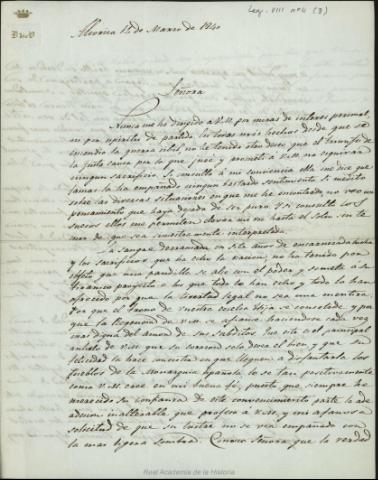 Leg. VIII nº 4 (3)
D. de V
Morella 14 de Marzo de 1840
Señora
Nunca me he dirigido a V.M. por miras de interes personal,
ni por espiritu de partido. En todos mis hechos desde que se
encendió la guerra civil, no he tenido otro que el triunfo de
la justa causa por la que juré y prometí a V.M. no
ningun sacrificio. Si consulto á mi conciencia ella me dice que
jamas la ha empañado ningun bastardo sentimiento. Si medito
sobre las diversas situaciones en que me he encontrado, no veo un
pensamiento que haya dejado de ser puro. Y si consulto los
sucesos ellos me
mor de que sea siniestramente interpretada.
La sangre derramada en siete años de encarnizada lucha
y los sacrificios que ha echo la nacion, no ha tenido por
objeto que una pandilla se alce con el poder y someta á su
tiranico proyecto á los que todo lo han echo y todo lo han
ofrecido por que la libertad legal no sea una mentira.
Por que el Trono de Vuestra escelsa hija se consolide, y por
que la Regencia de V.M. se afiance, haciendose cada vez
mas digna del amor de sus subditos. Que este es el principal
anhelo de V.M. que su corazon solo desea el bien y que su
felicidad la hace consistir en que lleguen á disfrutarla los
pueblos de la Monarquia española lo se tan positivamente
como V.M. cree en mi buena fé, puesto que siempre he
merecido su confianza. De este convencimiento parte la ad
hesion inalterable que profeso á V.M. y mi afanosa
solicitud de que su lustre no se vea empañado con
la mas ligera sombra. Conozco Señora que la verdad
Real Academia de la Historia